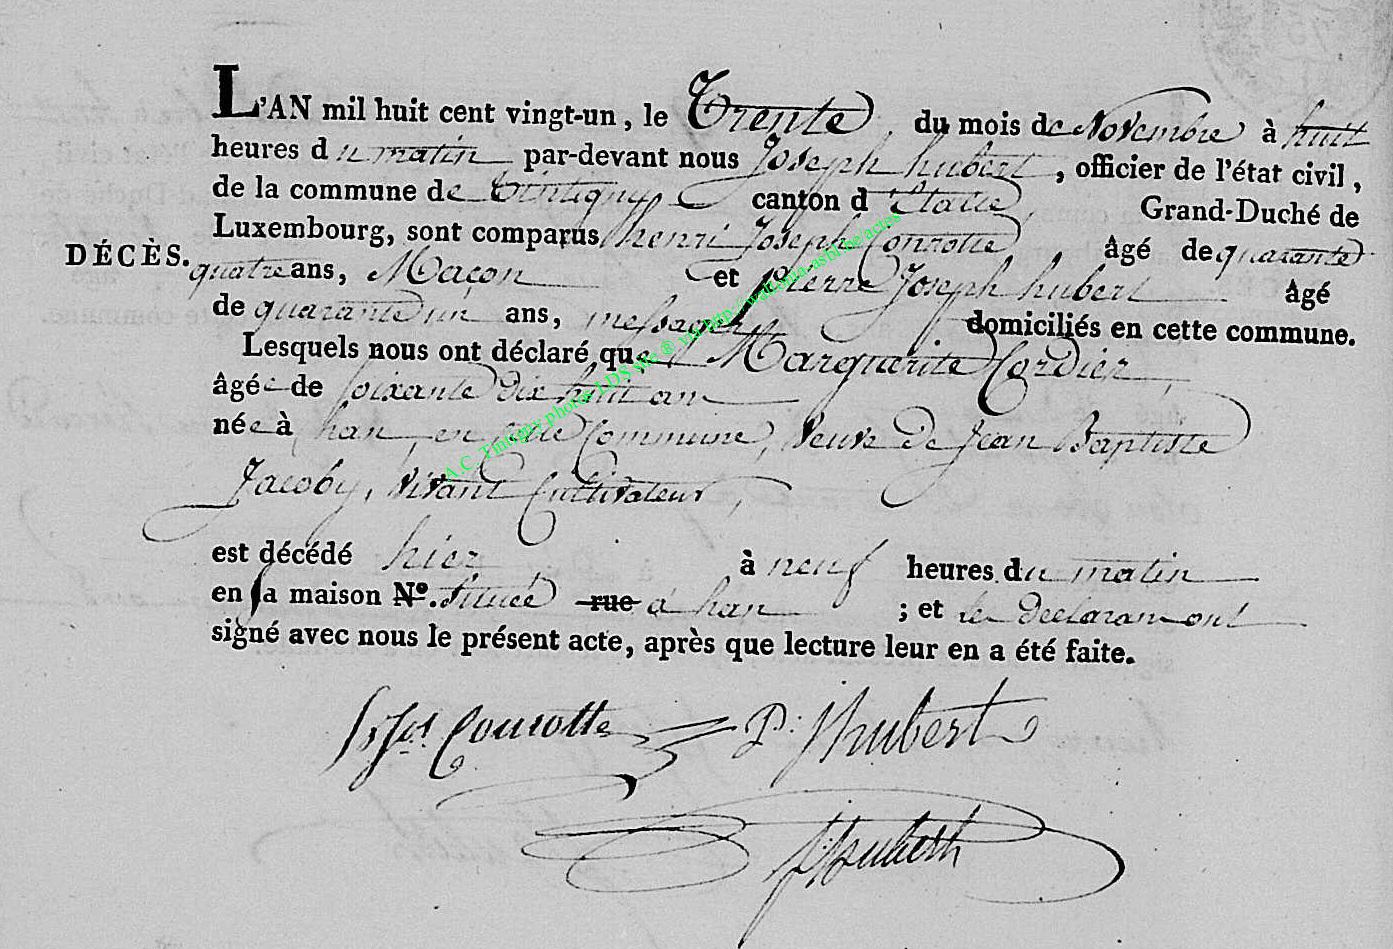 L'AN mil huit cent vingt-un, le Trente du mois de Novembre à huit
heures du matin par-devant nous Joseph hubert, officier de l'état civil,
de la commune de tintigny canton d'Etalle Grand-Duché de
Luxembourg, sont comparus henri Joseph Conrotte âgé de quarante
DÉCÈS.
quatre ans, Maçon et pierre Joseph hubert âgé
de quarante un ans, messager domiciliés en cette commune.
Lesquels nous ont déclaré que Marguerite Cordier
âgée de soixante dix huit an
née à han, en cette Commune, veuve de Jean Baptiste
Jacoby, vivant Cultivateur,
est décédé hier à neuf heures du matin
en sa maison No. située rue à han ; et les declarans ont
signé avec nous le présent acte, après que lecture leur en a été faite.
Conrotte P. J hubert
hubert
A.C. Tintigny photos LDS site ® via http://wallonia-asbl.be/actes